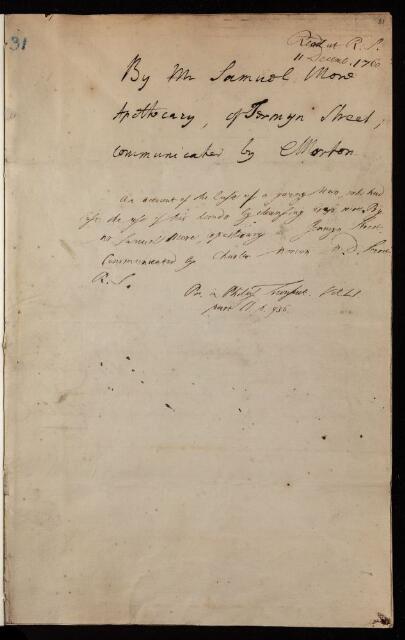 31
31
Read at R. S.
11 Decemb. 1760
By Mr Samuel More
Apothecary, of Jermyn Street,
communicated by CMorton
An account of the Case of a young Man, who had
lost the use of his hands by cleansing brass wire. By
Mr Samuel More apothecary in Jermyn Street.
Communicated by Charles Morton M. D. Secret.
R. S.
Pr. in Philos. Transact. Vol. LI
part II. p. 936.